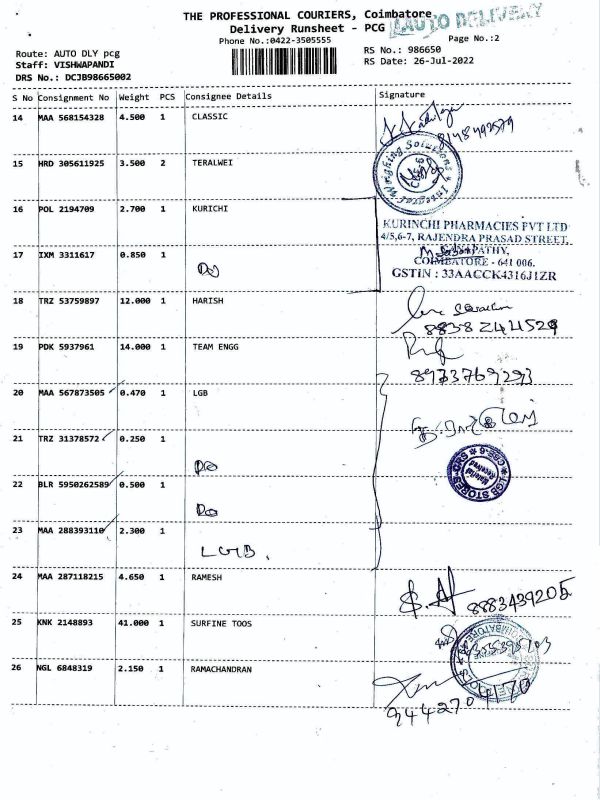 THE PROFESSIONAL COURIERS, Coimbatore
AUTO DELIVERY
Delivery Runsheet - PCG
Phone No.:0422-3505555
Page No.:2
Route: AUTO DLY pcg
RS No.: 986650
Staff: VISHWAPANDI
RS Date: 26-Jul-2022
DRS No.: DCJB98665002
S No Consignment No Weight PCS Consignee Details Signature
14 MAA 568154328 4.500 1 CLASSIC
8148492579
15 HRD 305611925 3.500 2 TERALWEI
Integral Weighing Solutions
16 POL 2194709 2.700 1 KURICHI
KURINCHI PHARMACIES PVT LTD
4/5,6-7, RAJENDRA PRASAD STREET,
17 IXM 3311617 0.850 1
Do
COIMBATORE - 641 006.
GSTIN : 33AACCK4316J1ZR
18 TRZ 53759897 12.000 1 HARISH
8838244529
19 PDK 5937961 14.000 1 TEAM ENGG
8973769293
20 MAA 567873505 0.470 1 LGB
21 TRZ 31378572 0.250 1
Do
LGB STORES-GRS
Material
Received
22 BLR 5950262589 0.500 1
Do
23 MAA 288393110 2.300 1
LGB.
24 MAA 287118215 4.650 1 RAMESH
8883439205
25 KNK 2148893 41.000 1 SURFINE TOOS
26 NGL 6848319 2.150 1 RAMACHANDRAN
9442704170